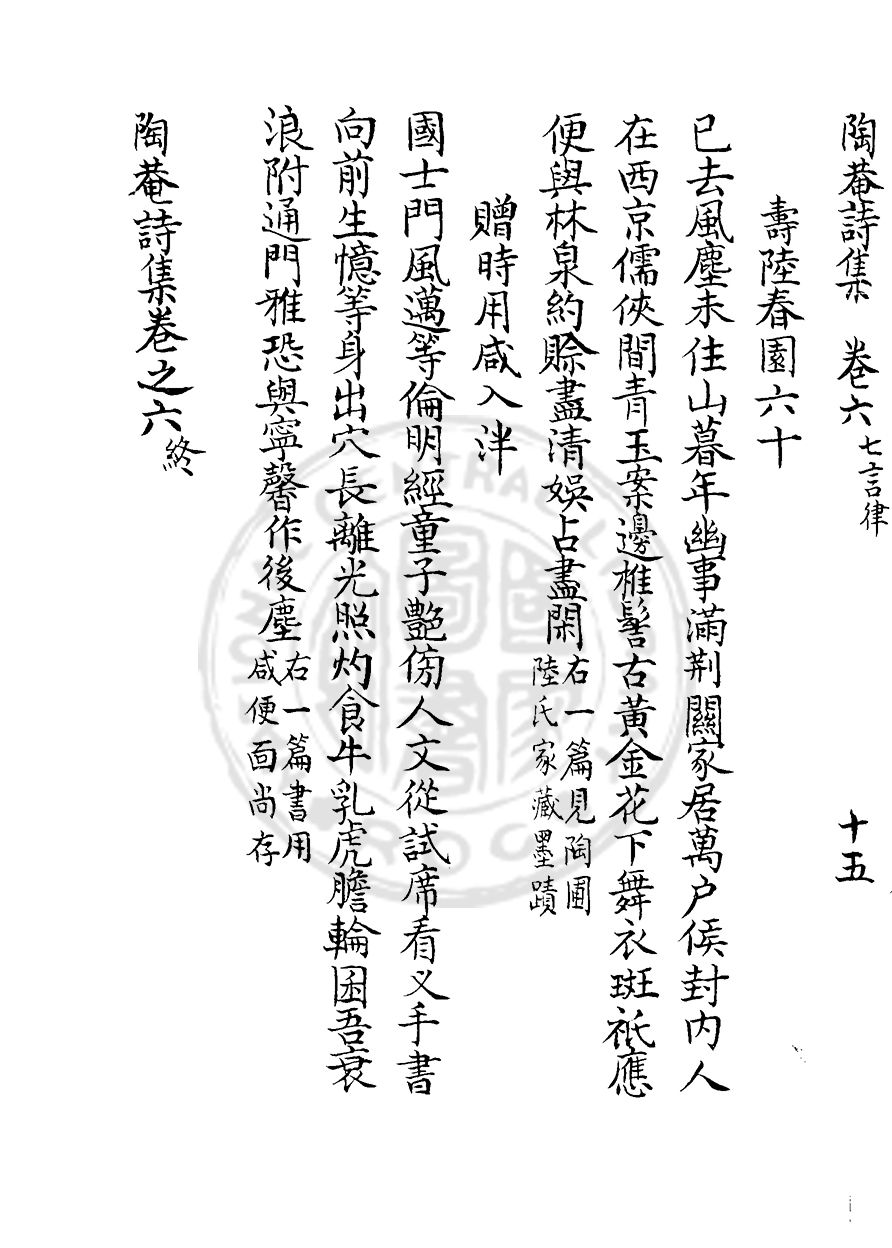 陶菴詩集 卷六 七言律 十五
壽陸春園六十
已去風塵未住山暮年幽事滿荆關家居萬户侯封内人
在西京儒俠間青玉案邊椎髻古黃金花下舞衣斑祇應
便與林泉約賒盡清娛占盡閑 右一篇見陶圃
陸氏家藏墨蹟
贈時用咸入泮
國士門風邁等倫明經童子艷傍人文從試席看义手書
向前生憶等身出穴長離光照灼食牛乳虎膽輪囷吾衰
浪附通門雅恐與寧馨作後塵 右一篇書用
咸便面尚存
陶菴詩集卷之六 終
NATIONAL CENTRAL LIBRARY